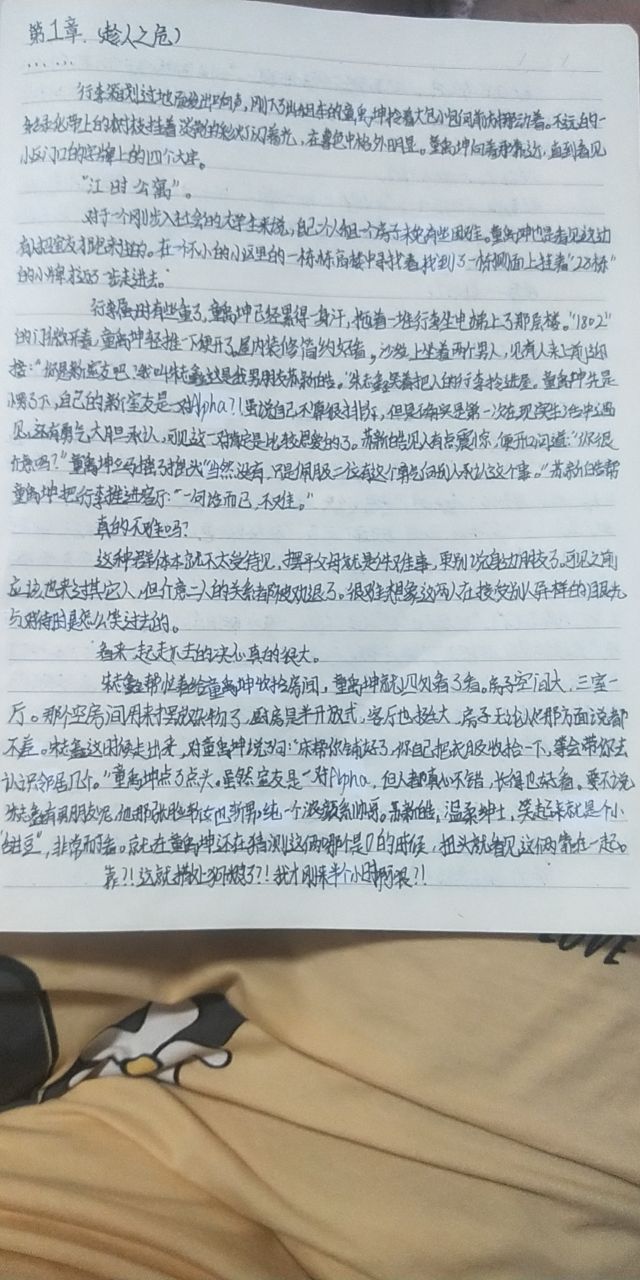 第1章.(趁人之危)
……
行李箱划过地面发出响声,刚下了出租车的童禹坤拎着大包小包向前挪动着。不远的一
绿化带上的树枝挂着淡淡的彩灯闪着光,在暮色中格外明显。童禹坤向着那靠近,直到看见
小区门口的字牌上的四个大字。
“江时公寓”。
对于一个刚步入社会的大学生来说,自己一个人租一个房子未免有些困难。童禹坤也是看见这边
有招室友才跑来租的。在一个不小的小区里的一栋栋高楼中寻找着,找到了一栋侧面上挂着“28栋”
的小牌才迈步走进去。
行李属实有些重了,童禹坤已经累得一身汗,拖着一堆行李生电梯上了那层楼。“1802”
的门微开着,童禹坤轻推一下便开了。屋内装修简约好看,沙发上坐着两个男人,见有人来上前迎
接:“你是新室友吧,我叫朱志鑫这是我男朋友苏新皓。”朱志鑫笑着把人的行李拎进屋。童禹坤先是
愣了下,自己的新室友是一对Alpha?!虽说自己不算很排斥,但是确实是第一次在现实生活中遇
见,还有勇气大胆承认,可见这一对肯定是比较恩爱的了。苏新皓见人有点震惊,便开口问道:“你很
介意吗?”童禹坤立马摇了摇头“当然没有,只是佩服二位有这个勇气向别人承认这个事。”苏新皓帮
童禹坤把行李推进客厅:“一句话而已,不难。”
真的不难吗?
这种群体本就不太受待见,摆平父母就是件难事,更别说身边朋友了。可见之前
应该也来过其它人,但介意二人的关系都被劝退了。很难想象这两人在接受别人异样的目光
与对待时是怎么笑过去的。
看来一起走下去的决心真的很大。
朱志鑫帮忙着给童禹坤收拾房间,童禹坤就四处看了看。房子空间大,三室一
厅。那个空房间用来摆放杂物了,厨房是半开放式,客厅也挺大,房子无论从那方面说都
不差。朱志鑫这时候走出来,对童禹坤说了句:“床帮你铺好了,你自己把衣服收拾一下,等会带你去
认识邻居几个。”童禹坤点了点头。虽然室友是一对Alpha,但人都真心不错,长得也好看。要不说
朱志鑫有男朋友呢,他那张脸斩女也斩男,纯一个浓颜系帅哥。苏新皓,温柔绅士,笑起来就是个小
“甜豆”,非常耐看。就在童禹坤还在猜测这俩哪个是0的时候,扭头就看见这俩靠在一起。
靠?!这就撒起狗粮了?!我才刚来半个小时啊喂?!
LOVE